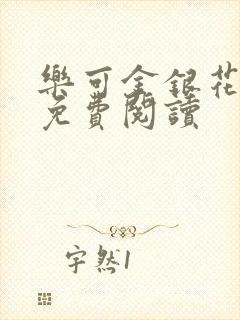 樂可金銀花
免費閱讀
宇然1